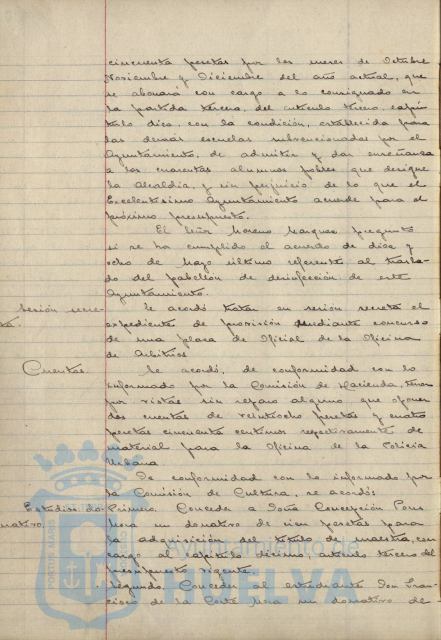 cincuenta pesetas por los meses de Octubre
Noviembre y Diciembre del año actual, que
se abonará con cargo a lo consignado en
la partida tercera, del artículo tercero, capí-
tulo diez, con la condición, establecida para
las demás escuelas subvencionadas por el
Ayuntamiento, de admitir y dar enseñanza
a los cuarenta alumnos pobres que designe
la Alcaldía, y sin perjuicio de lo que el
Excelentísimo Ayuntamiento acuerde para el
próximo presupuesto.
El Señor Moreno Marquez preguntó
si se ha cumplido el acuerdo de diez y
ocho de Mayo último referente al trasla-
do del pabellón de desinfección de este
Ayuntamiento.
Sesión secre-
ta.
Se acordó tratar en sesión secreta el
expediente de provisión mediante concurso
de una plaza de Oficial de la Oficina
de Arbitrios
Cuentas.
Se acordó, de conformidad con lo
informado por la Comisión de Hacienda,
por vistas sin reparo alguno que oponer
dos cuentas de veintiocho pesetas y cuatro
pesetas cincuenta centimos respectivamente de
material para la Oficina de la Policía
Urbana
De conformidad con lo informado por
la Comisión de Cultura, se acordó:
Estudios do-
nativo.
Primero. Conceder a Doña Concepción Pons
Mora un donativo de cien pesetas para
la adquisición del título de maestra, con
cargo al capítulo décimo, artículo tercero del
presupuesto vigente.
Segundo. Conceder al estudiante Don Fran-
cisco de la Corte Mora un donativo de
Ayuntamiento de
HUELVA